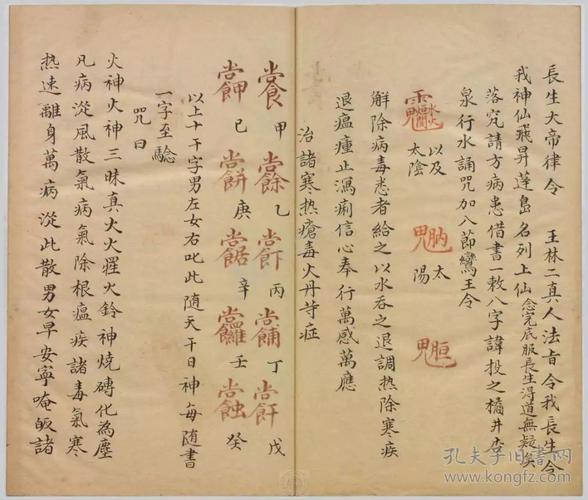 長生大帝律令　王林二真人法旨令我長生令
我神仙飛昇蓬島名列上仙念完底服長生得道無疑矣
落完請方病患借書一敕八字諱投之橘井杏
泉行水誦咒加八節鸞王令
以及
太陰
太
陽
解除病毒患者給之以水吞之退調熱除寒疾
退瘟瘴止瀉痢信心奉行萬感萬應
治諸寒热瘡毒火丹等症
甲 乙 丙 丁 戊
己 庚 辛 壬 癸
以上十干字男左女右叱此随天干日神每随書
一字至驗
咒曰
火神火神三昧真火火羅火鈴神燒磚化為塵
凡病從風散氣病氣除根瘟疾諸毒氣寒
热速離身萬病從此散男女早安寧唵皈諸
孔夫子旧书网
www.kongfz.com